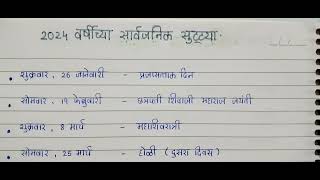 2024 वर्षीच्या सार्वजनिक सुट्ट्या
• शुक्रवार, 26 जानेवारी - प्रजासत्ताक दिन
• सोमवार, 19 फेब्रुवारी - छत्रपती शिवाजी महाराज जयंती
• शुक्रवार, 8 मार्च - महाशिवरात्री
• सोमवार, 25 मार्च - होळी (दुसरा दिवस)